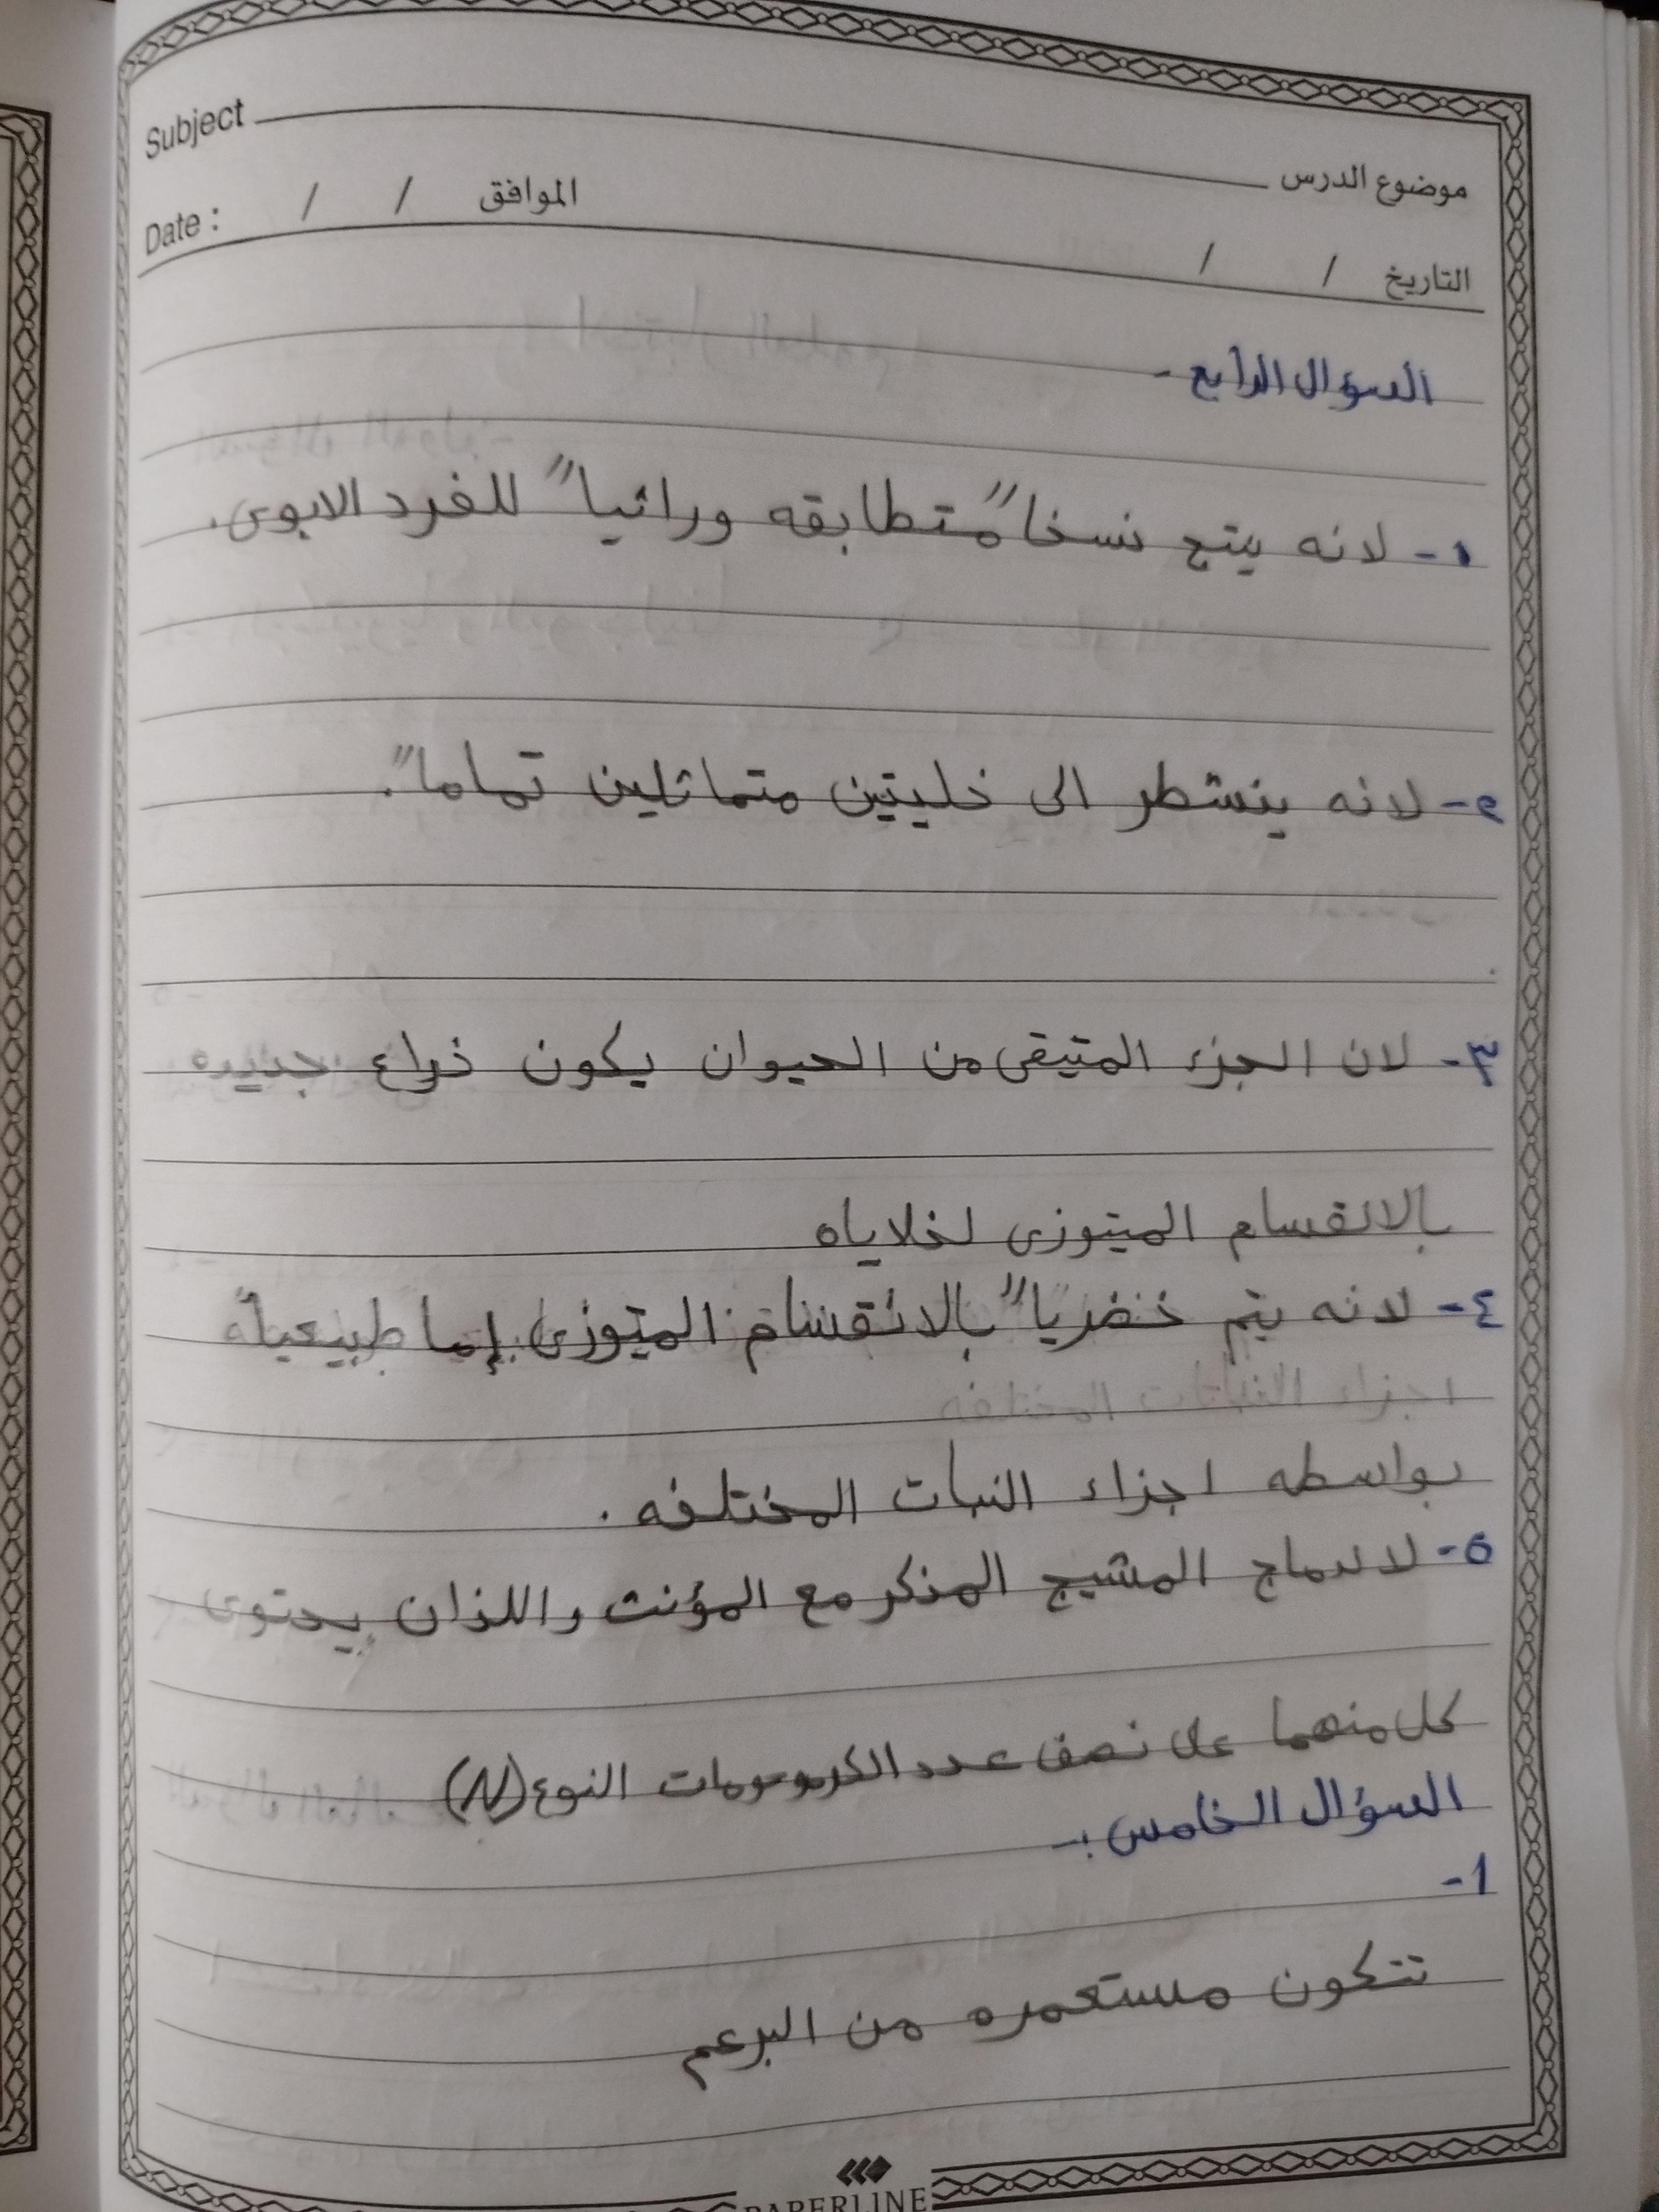 Subject موضوع الدرس
Date : / / الموافق / / التاريخ
السؤال الرابع -
١- لانه ينتج نسخا" متطابقه وراثيا" للفرد الابوى.
٢- لانه ينشطر الى خليتين متماثلين تماما".
٣- لان الجزء المتبقى من الحيوان يكون ذراع جديده
بالانقسام الميتوزى لخلاياه
٤- لانه يتم خضريا" بالانقسام الميتوزى إما طبيعياً
بواسطه اجزاء النبات المختلفه .
٥- لاندماج المشيج المذكر مع المؤنث واللذان يحتوى
كل منهما على نصف عدد الكروموسومات النوع (N)
السؤال الخامس :-
1-
تتكون مستعمره من البرعم
PAPERLINE